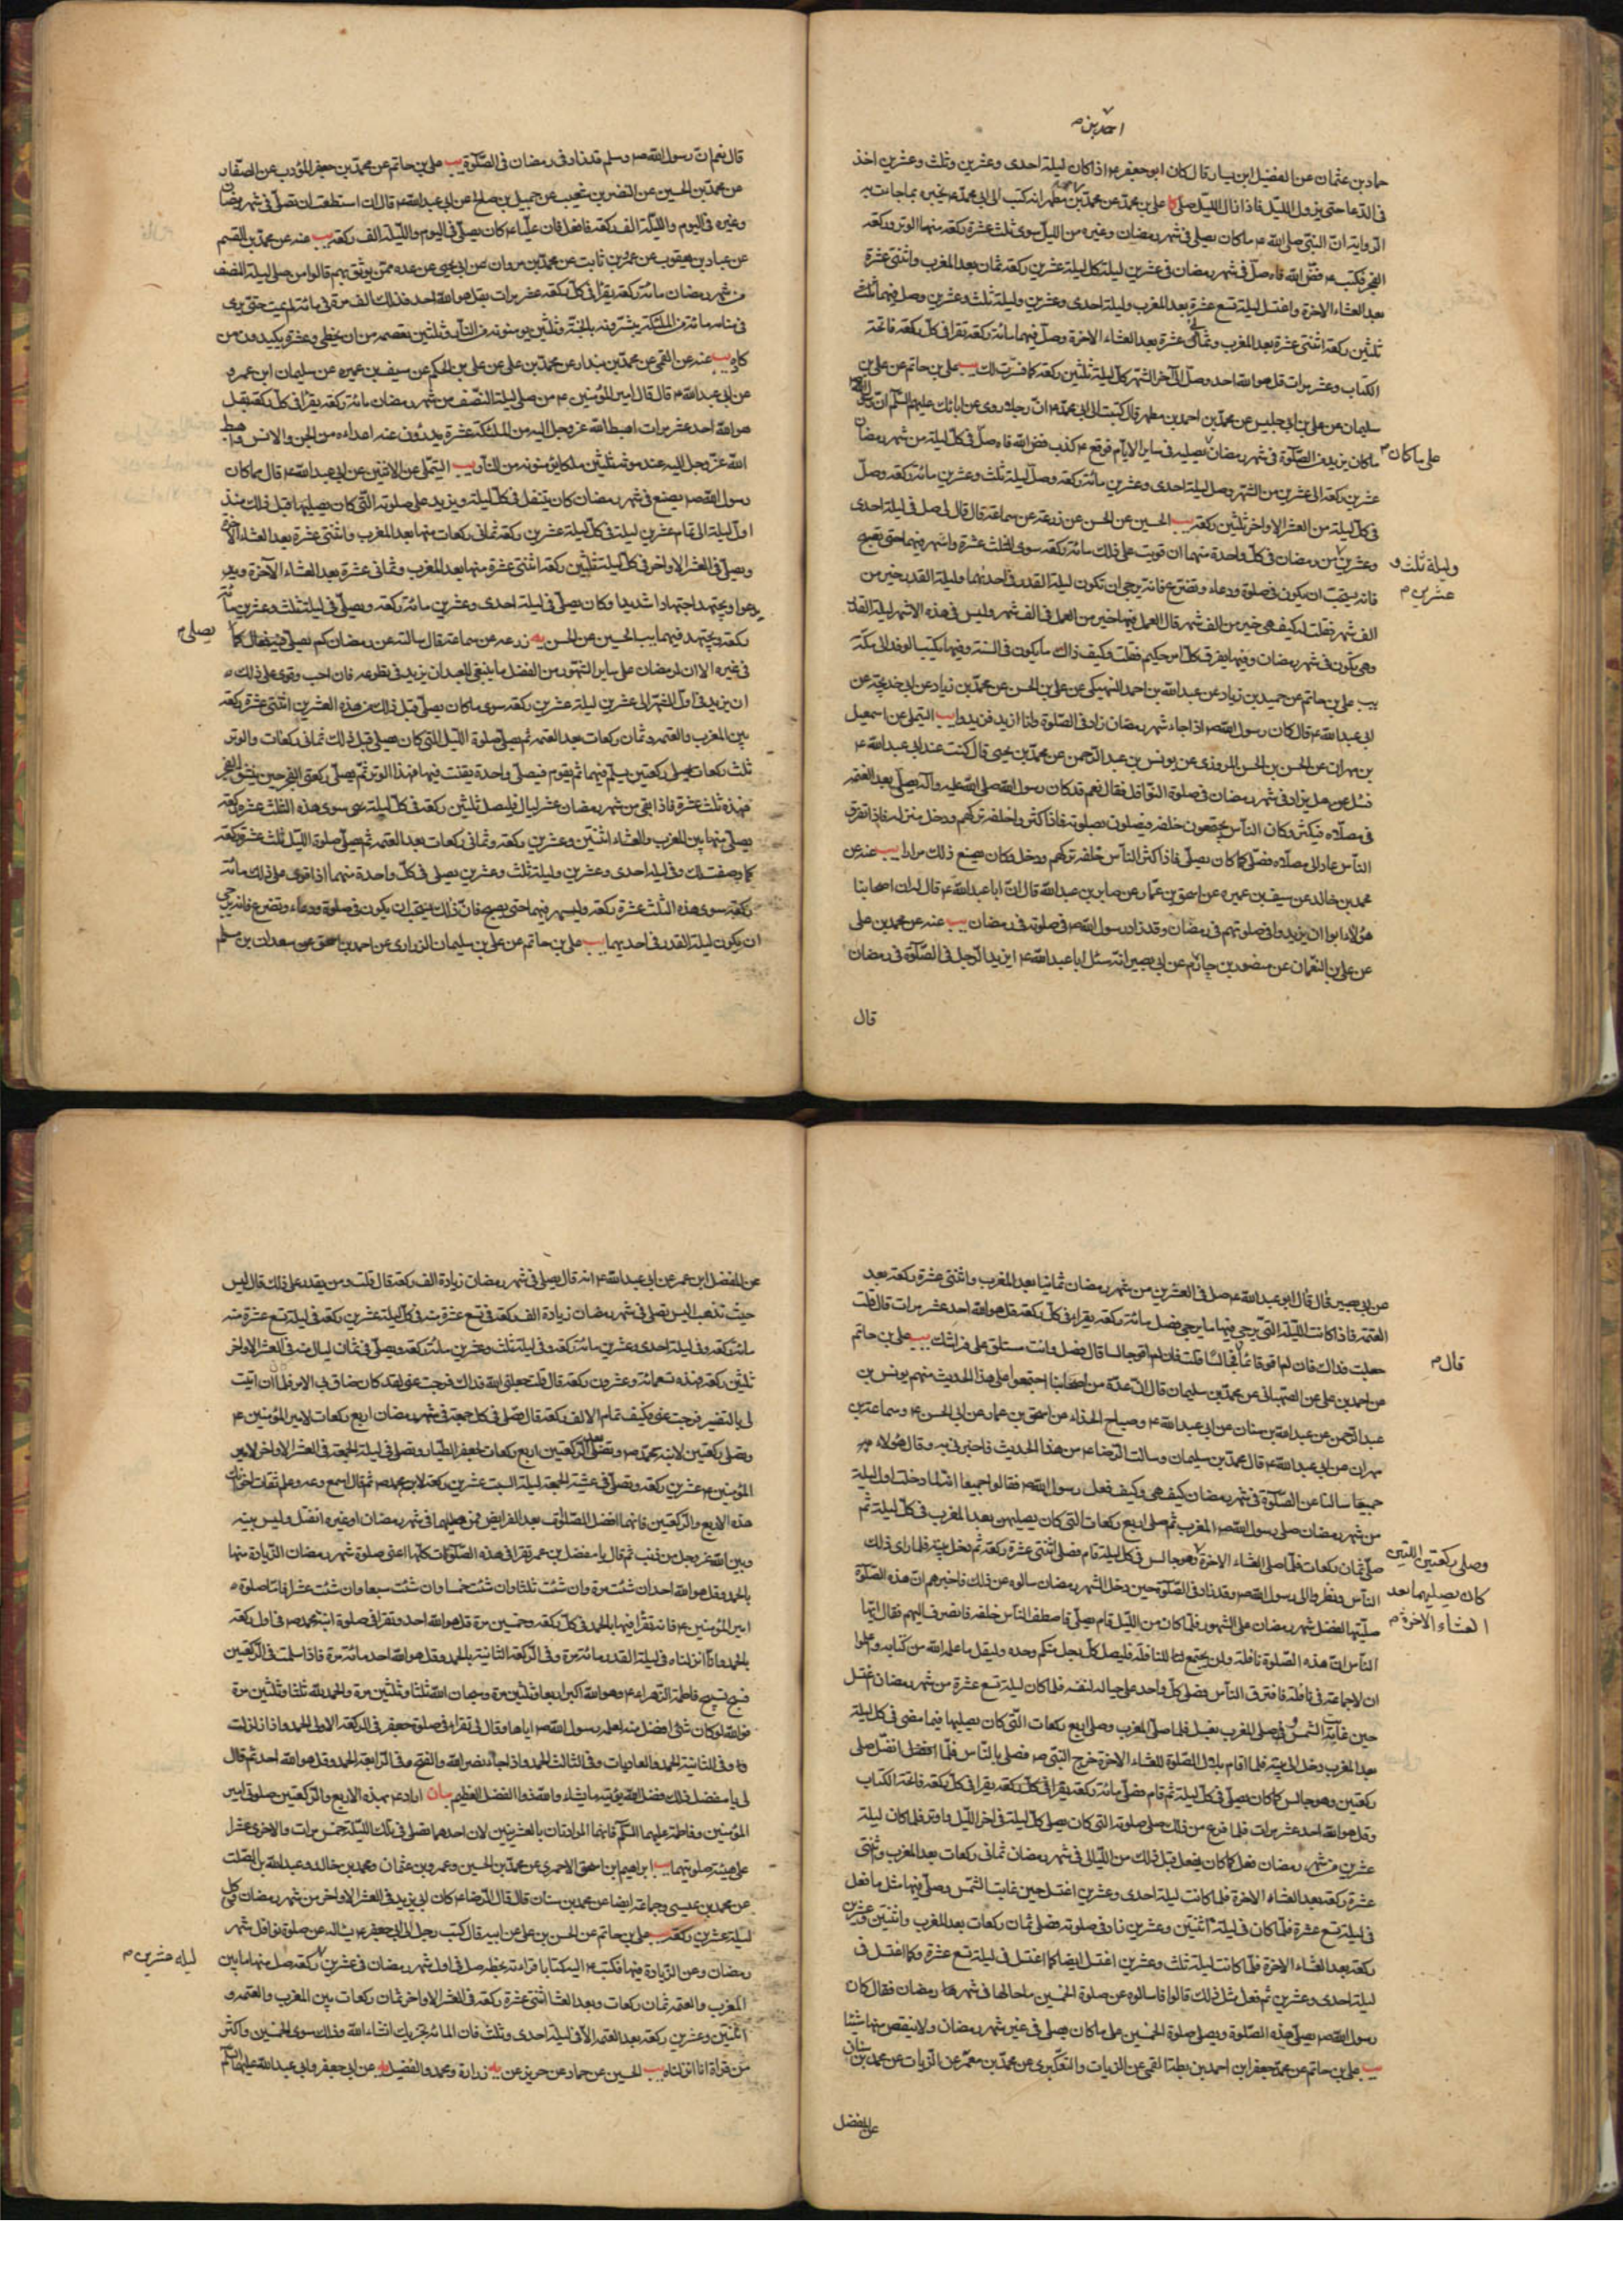 احمد بن م
حماد بن عثمان عن الفضيل ابن يسار قال كان ابو جعفر ع اذا كان ليلة احدى وعشرين وثلث وعشرين اخذ
فى الدعا حتى يزول الليل فاذا زال الليل صلى كا على بن محمد عن محمد بن مطهر انه كتب الى ابى محمد ع يخبره بما جاءت به
الرواية ان النبى صلى الله ع ما كان يصلى فى شهر رمضان وغيره من الليل سوى ثلث عشرة ركعة منها الوتر وركعة
الفجر فكتب ع فض الله فاه صلى فى شهر رمضان فى عشرين ليلة كل ليلة عشرين ركعة ثمان بعد المغرب واثنتى عشرة
بعد العشاء الاخرة واغتسل ليلة تسع عشرة بعد المغرب وليلة احدى وعشرين وليلة ثلث وعشرين وصل فيهما
ثلثين ركعة اثنتى عشرة بعد المغرب وثمانى عشرة بعد العشاء الاخرة وصل فيهما مائة ركعة تقرا فى كل ركعة فاتحة
الكتاب وعشر مرات قل هو الله احد وصل الى آخر الشهر كل ليلة ثلثين ركعة كما فسرت لك يب على بن حاتم عن على بن
سليمان عن على بن ابى جليس عن محمد بن احمد بن مطهر قال كتبت الى ابى محمد ع ان رجلا روى عن ابائك عليهم السلم ان رسول الله ص
ما كان يزيد من الصلوة فى شهر رمضان يصليه فى ساير الايام فوقع ع كذب فض الله فاه صل فى كل ليلة من شهر رمضان
على ما كان م
عشرين ركعة الى عشرين من الشهر وصل ليلة احدى وعشرين مائة ركعة وصل ليلة ثلث وعشرين مائة ركعة وصل
فى كل ليلة من العشر الاواخر ثلثين ركعة يب الحسين عن الحسن عن زرعة عن سماعة قال قال لى صل فى ليلة احدى
وعشرين من رمضان فى كل واحدة منهما ان قويت على ذلك مائة ركعة سوى الثلث عشرة واسهر فيهما حتى تصبح
وليلة ثلث و
عشرين م
فانه يستحب ان يكون فى صلوة ودعاء وتضرع فانه يرجى ان تكون ليلة القدر فى احدهما وليلة القدر خير من
الف شهر فقلت له كيف هى خير من الف شهر قال العمل فيها خير من العمل فى الف شهر وليس فى هذه الاشهر ليلة القدر
وهى تكون فى شهر رمضان وفيها يفرق كل امر حكيم فقلت وكيف ذاك ما يكون فى السنة وفيها يكتب الوفد الى مكة
يب على بن حاتم عن حميد بن زياد عن عبدالله بن احمد النهيكى عن على بن الحسن عن محمد بن زياد عن ابى خديجة عن
ابى عبدالله ع قال كان رسول الله ص اذا جاء شهر رمضان زاد فى الصلوة وانا ازيد فزيدوا يب التيملى عن اسمعيل
بن مهران عن الحسن بن الحسن المروزى عن يونس بن عبدالرحمن عن محمد بن يحيى قال كنت عند ابى عبدالله ع
فسئل عن هل يزاد فى شهر رمضان فى صلوة النوافل فقال نعم قد كان رسول الله صلى الله عليه وآله يصلى بعد العتمة
فى مصلاه فيكثر وكان الناس يجتمعون خلفه فيصلون بصلوته فاذا كثروا خلفه تركهم ودخل منزله فاذا تفرق
الناس عاد الى مصلاه فصلى كما كان يصلى فاذا كثر الناس خلفه تركهم ودخل وكان يصنع ذلك مرارا يب عنه عن
محمد بن خالد عن سيف بن عميره عن اسحق بن عمار عن صابر بن عبدالله قال ان ابا عبدالله ع قال له ان اصحابنا
هؤلاء ابوا ان يزيدوا فى صلوتهم فى رمضان وقد زاد رسول الله ص فى صلوته فى رمضان يب عنه عن محمد بن على
عن على بن النعمان عن منصور بن حازم عن ابى بصير انه سئل ابا عبدالله ع ايزيد الرجل فى الصلوة فى رمضان
قال
قال نعم ان رسول الله ص وسلم قد زاد فى رمضان فى الصلوة يب على بن حاتم عن محمد بن جعفر المؤدب عن الصفار
عن محمد بن الحسين عن النضر بن شعيب عن جميل بن صالح عن ابى عبدالله ع قال ان استطعت ان تصلى فى شهر رمضان
وغيره فى اليوم والليلة الف ركعة فافعل فان عليا ع كان يصلى فى اليوم والليلة الف ركعة يب عنه عن محمد بن القسم
عن عباد بن يعقوب عن عمرو بن ثابت عن محمد بن مروان عن ابى يحيى عن عدة ممن يوثق بهم قالوا من صلى ليلة النصف
من شهر رمضان مائة ركعة يقرا فى كل ركعة عشر مرات بقل هو الله احد فذلك الف مرة فى مائة لم يمت حتى يرى
فى منامه مائة من الملئكة يبشرونه بالجنة وثلثين يومنونه من النار وثلثين تعصمه من ان يخطى وعشرة يكيدون من
كاده يب عنه عن القمى عن محمد بن بندار عن محمد بن على عن على بن الحكم عن سيف بن عميره عن سليمان ابن عمرو
عن ابى عبدالله ع قال قال امير المؤمنين ع من صلى ليلة النصف من شهر رمضان مائة ركعة يقرا فى كل ركعة بقل
هو الله احد عشر مرات اهبط الله عز وجل اليه من الملئكة عشرة يدرؤن عنه اعداءه من الجن والانس واهبط
الله عز وجل اليه عند موته ثلثين ملكا يؤمنونه من النار يب التيملى عن الاثنين عن ابى عبدالله ع قال مما كان
رسول الله ص يصنع فى شهر رمضان كان يتنفل فى كل ليلة ويزيد على صلوته التى كان يصليها قبل ذلك منذ
اول ليلة الى تمام عشرين ليلة فى كل ليلة عشرين ركعة ثمانى ركعات منها بعد المغرب واثنتى عشرة بعد العشاء الاخرة
ويصلى فى العشر الاواخر فى كل ليلة ثلثين ركعة اثنتى عشرة منها بعد المغرب وثمانى عشرة بعد العشاء الآخرة و
يدعوا ويجتهد اجتهادا شديدا وكان يصلى فى ليلة احدى وعشرين مائة ركعة ويصلى فى ليلة ثلث وعشرين مائة
ركعة ويجتهد فيهما يب الحسين عن الحسن يه زرعه عن سماعة قال سالته عن رمضان كم يصلى فيه فقال كما
يصلى م
فى غيره الا ان لرمضان على ساير الشهور من الفضل ما ينبغى للعبد ان يزيد فى تطوعه فان احب وقوى على ذلك
ان يزيد فى اول الشهر الى عشرين ليلة عشرين ركعة سوى ما كان يصلى قبل ذلك من هذه العشرين اثنتى عشرة ركعة
بين المغرب والعتمة وثمان ركعات بعد العتمة ثم يصلى صلوة الليل التى كان يصلى قبل ذلك ثمانى ركعات والوتر
ثلث ركعات يصلى ركعتين يسلم فيهما ثم يقوم فيصلى واحدة يقنت فيها فهذا الوتر ثم يصلى ركعتى الفجر حين ينشق الفجر
فهذه ثلث عشرة فاذا بقى من شهر رمضان عشر ليال فليصل ثلثين ركعة فى كل ليلة سوى هذه الثلث عشرة ركعة
يصلى منها بين المغرب والعشاء اثنتين وعشرين ركعة وثمانى ركعات بعد العتمة ثم يصلى صلوة الليل ثلث عشرة ركعة
كما وصفت لك وفى ليلة احدى وعشرين وليلة ثلث وعشرين يصلى فى كل واحدة منهما اذا قوى على ذلك مائة
ركعة سوى هذه الثلث عشرة ركعة وليسهر فيهما حتى يصبح فان ذلك يستحب ان يكون فى صلوة ودعاء وتضرع فانه يرجى
ان يكون ليلة القدر فى احديهما يب على بن حاتم عن على بن سليمان الزرارى عن احمد بن اسحق عن سعدان بن مسلم
عن ابى بصير قال قال ابو عبدالله ع صل فى العشرين من شهر رمضان ثمانيا بعد المغرب واثنتى عشرة ركعة بعد
العتمة فاذا كانت الليلة التى يرجى فيها ما يرجى فصل مائة ركعة يقرا فى كل ركعة قل هو الله احد عشر مرات قال قلت
جعلت فداك فان لم اقو قائما قال جالسا قلت فان لم اقو جالسا قال فصل وانت مستلق على فراشك يب على بن حاتم
قال م
عن احمد بن على عن الصهبانى عن محمد بن سليمان قال ان عدة من اصحابنا اجتمعوا على هذا الحديث منهم يونس بن
عبدالرحمن عن عبدالله بن سنان عن ابى عبدالله ع وصباح الحذاء عن اسحق بن عمار عن ابى الحسن ع وسماعة بن
مهران عن ابى عبدالله ع قال محمد بن سليمان وسالت الرضا ع عن هذا الحديث فاخبرنى به وقال هؤلاء
جميعا سالنا عن الصلوة فى شهر رمضان كيف هى وكيف فعل رسول الله ص فقالوا جميعا انه لما دخلت اول ليلة
من شهر رمضان صلى رسول الله ص المغرب ثم صلى اربع ركعات التى كان يصليهن بعد المغرب فى كل ليلة ثم
صلى ثمان ركعات فلما صلى العشاء الاخرة وهو جالس فى كل ليلة قام فصلى اثنتى عشرة ركعة ثم دخل بيته فلما راى ذلك
وصلى ركعتين اللتين
كان يصليهما بعد
العشاء الاخرة م
الناس ونظروا الى رسول الله ص وقد زاد فى الصلوة حين دخل الشهر رمضان سالوه عن ذلك فاخبرهم ان هذه الصلوة
صليتها لفضل شهر رمضان على الشهور فلما كان من الليل قام يصلى فاصطف الناس خلفه فانصرف اليهم فقال ايها
الناس ان هذه الصلوة نافلة ولن يجتمع للنافلة فليصل كل رجل منكم وحده وليقل ما علمه الله من كتابه واعلموا
ان لا جماعة فى نافلة فافترق الناس فصلى كل واحد على حياله لنفسه فلما كان ليلة تسع عشرة من شهر رمضان اغتسل
حين غابت الشمس وصلى المغرب بغسل فلما صلى المغرب وصلى اربع ركعات التى كان يصليها فيما مضى فى كل ليلة
بعد المغرب دخل الى بيته فلما اقام بلال الصلوة للعشاء الاخرة خرج النبى ص فصلى بالناس فلما انفتل صلى
ركعتين وهو جالس كما كان يصلى فى كل ليلة ثم قام فصلى مائة ركعة يقرا فى كل ركعة فاتحة الكتاب
وقل هو الله احد عشر مرات فلما فرغ من ذلك صلى صلوته التى كان يصلى كل ليلة فى اخر الليل واوتر فلما كان ليلة
عشرين من شهر رمضان فعل كما كان يفعل قبل ذلك من الليالى فى شهر رمضان ثمانى ركعات بعد المغرب واثنتى
عشرة ركعة بعد العشاء الاخرة فلما كانت ليلة احدى وعشرين اغتسل حين غابت الشمس وصلى فيها مثل ما فعل
فى ليلة تسع عشرة فلما كان فى ليلة اثنتين وعشرين زاد فى صلوته فصلى ثمان ركعات بعد المغرب واثنتين وعشرين
ركعة بعد العشاء الاخرة فلما كانت ليلة ثلث وعشرين اغتسل ايضا كما اغتسل فى ليلة تسع عشرة وكما اغتسل فى
ليلة احدى وعشرين ثم فعل مثل ذلك قالوا فسالوه عن صلوة الخمسين ما حالها فى شهر رمضان فقال كان
رسول الله ص يصلى هذه الصلوة ويصلى صلوة الخمسين على ما كان يصلى فى غير شهر رمضان ولا ينقص منها شيئا
يب على بن حاتم عن محمد جعفر ابن احمد بن بطة القمى عن الزيات والتلعكبرى عن محمد بن معمر عن الزيات عن محمد بن سنان
عن المفضل
عن المفضل ابن عمر عن ابى عبدالله ع انه قال يصلى فى شهر رمضان زيادة الف ركعة قال قلت ومن يقدر على ذلك قال ليس
حيث تذهب اليس تصلى فى شهر رمضان زيادة الف ركعة فى تسع عشرة منه فى كل ليلة عشرين ركعة فى ليلة تسع عشرة منه
مائة ركعة وفى ليلة احدى وعشرين مائة ركعة وفى ليلة ثلث وعشرين مائة ركعة ويصلى فى ثمان ليال منه فى العشر الاواخر
ثلثين ركعة فهذه تسعمائة وعشرون ركعة قال قلت جعلنى الله فداك فرجت عنى لقد كان ضاق بى الامر فلما ان اتيت
لى بالتفسير فرجت عنى فكيف تمام الالف ركعة قال تصلى فى كل جمعة فى شهر رمضان اربع ركعات لامير المؤمنين ع
وتصلى ركعتين لابنة محمد ص وتصلى بعد الركعتين اربع ركعات لجعفر الطيار وتصلى فى ليلة الجمعة فى العشر الاواخر لامير
المؤمنين ع عشرين ركعة وتصلى فى عشية الجمعة ليلة السبت عشرين ركعة لابنة محمد ص ثم قال اسمع وعه وعلم ثقات اخوانك
هذه الاربع والركعتين فانهما افضل الصلوات بعد الفرايض فمن صلاهما فى شهر رمضان او غيره انفتل وليس بينه
وبين الله عز وجل من ذنب ثم قال يا مفضل بن عمر تقرا فى هذه الصلوات كلها اعنى صلوة شهر رمضان الزيادة منها
بالحمد وقل هو الله احد ان شئت مرة وان شئت ثلثا وان شئت خمسا وان شئت سبعا وان شئت عشرا فاما صلوة
امير المؤمنين ع فانه تقرا فيها بالحمد فى كل ركعة وخمسين مرة قل هو الله احد وتقرا فى صلوة ابنة محمد ص فى اول ركعة
بالحمد وانا انزلناه فى ليلة القدر مائة مرة وفى الركعة الثانية بالحمد وقل هو الله احد مائة مرة فاذا سلمت فى الركعتين
فسبح تسبيح فاطمة الزهراء ع وهو الله اكبر اربعا وثلثين مرة وسبحان الله ثلثا وثلثين مرة والحمد لله ثلثا وثلثين مرة
فوالله لو كان شئ افضل منه لعلمه رسول الله ص اياها وقال لى تقرا فى صلوة جعفر فى الركعة الاولى الحمد واذا زلزلت
وفى الثانية الحمد والعاديات وفى الثالث الحمد واذا جاء نصر الله والفتح وفى الرابعة الحمد وقل هو الله احد ثم قال
لى يا مفضل ذلك فضل الله يؤتيه من يشاء والله ذو الفضل العظيم بيان اراد ع بهذه الاربع والركعتين صلوتى امير
المؤمنين وفاطمة عليهما السلم فانهما المرادتان بالعشرينين لان احدهما تصلى فى تلك الليلة خمس مرات والاخرى عشرا
على هيئة صلوتيهما يب ابراهيم ابن اسحق الاحمرى عن محمد بن الحسين وعمرو بن عثمان ومحمد بن خالد وعبدالله بن الصلت
عن محمد بن عيسى وجماعة ايضا عن محمد بن سنان قال قال الرضا ع كان ابى يزيد فى العشر الاواخر من شهر رمضان فى كل
ليلة عشرين ركعة يب على بن حاتم عن الحسن بن على عن ابيه قال كتب رجل الى ابى جعفر ع يساله عن صلوة نوافل شهر
رمضان وعن الزيادة فيها فكتب ع اليه كتابا قراءته بخطه صل فى اول شهر رمضان فى عشرين ركعة صل منها ما بين
ليلة عشرين م
المغرب والعتمة ثمان ركعات وبعد العشا اثنتى عشرة ركعة فى العشر الاواخر ثمان ركعات بين المغرب والعتمة و
اثنتين وعشرين ركعة بعد العتمة الا فى ليلة احدى وثلث فان المائة تجزيك انشاء الله وذلك سوى الخمسين واكثر
من قراءة انا انزلناه يب الحسين عن حماد عن حريز عن يه زرارة ومحمد والفضيل يه عن ابى جعفر وابى عبدالله عليهما السلم